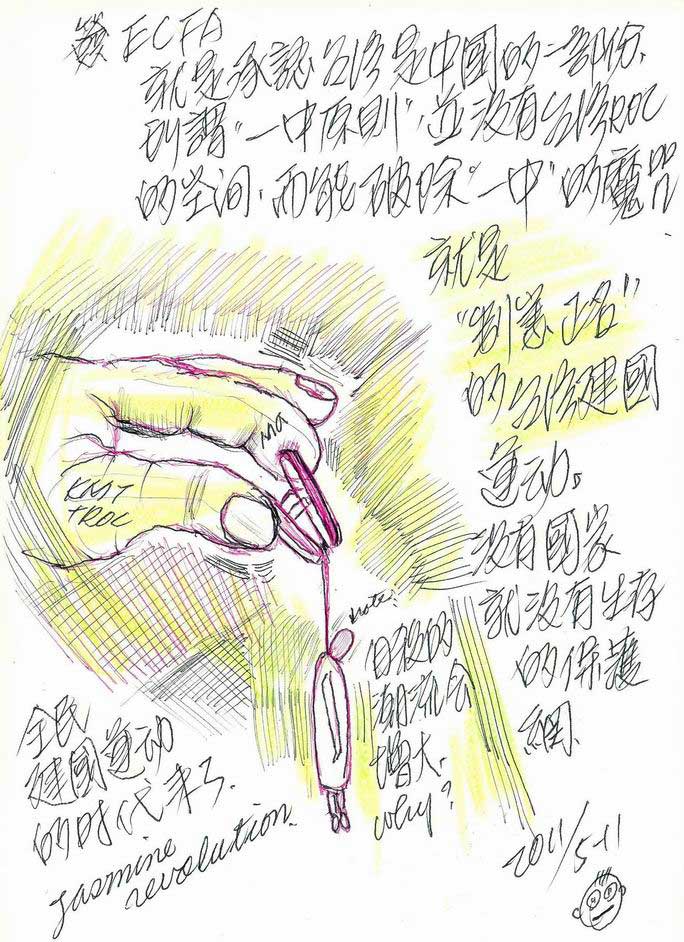 簽 ECFA
就是承認台灣是中國的一部份.
所謂"一中原則"並沒有台灣ROC
的空间.而能破除"一中"的魔咒
就是
"制憲正名"
的台灣建國
運动。
沒有國家
就沒有生存
的保護
網.
MA
KMT
TROC
note.
自殺的
潮流会
增大.
why?
全民
建國運动
的时代来了.
jasmine
revolution.
2011/5-11